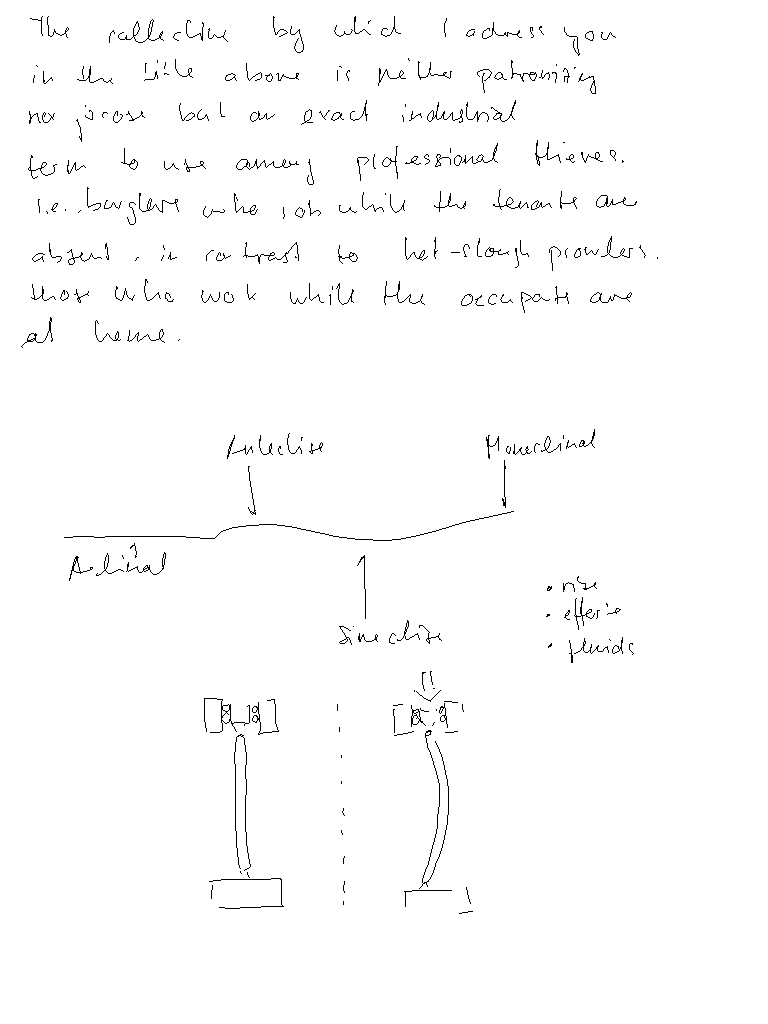 The collective by which I adress you
in the title above is neither patronizing
nor jocose but an exact industrial
term to use among professional thieves.
i.e. burglars who job while the tenants are
absent, in contrast to hot-slough prowlers.
those who work while the occupats are
at home.
Anteclise
Monoclinal
Aclinal
Sineclise
• rise
• effersie
• fluids
!!